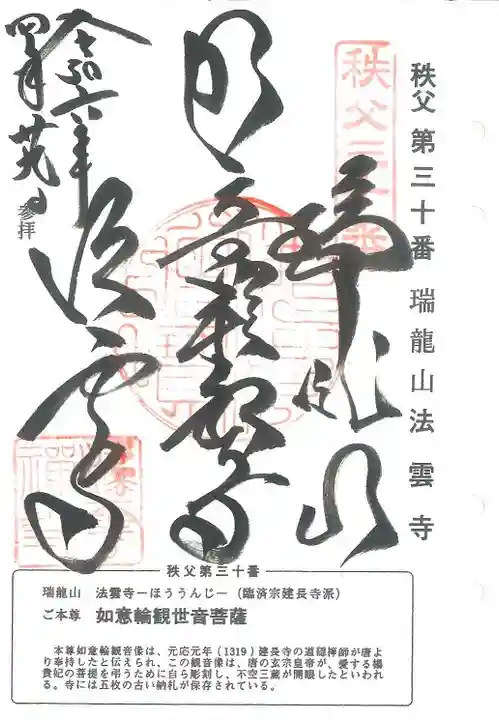 秩父第三十番 瑞龍山法雲寺
秩父三十番
瑞龍山
法雲寺
令和六年
四月
参拝
秩父第三十番
瑞龍山 法雲寺－ほううんじ－（臨済宗建長寺派）
ご本尊 如意輪観世音菩薩
本尊如意輪観音像は、元応元年（1319）建長寺の道隠禅師が唐よ
り奉持したと伝えられ、この観音像は、唐の玄宗皇帝が、愛する楊
貴妃の菩提を弔うために自ら彫刻し、不空三蔵が開眼したといわれ
る。寺には五枚の古い納札が保存されている。